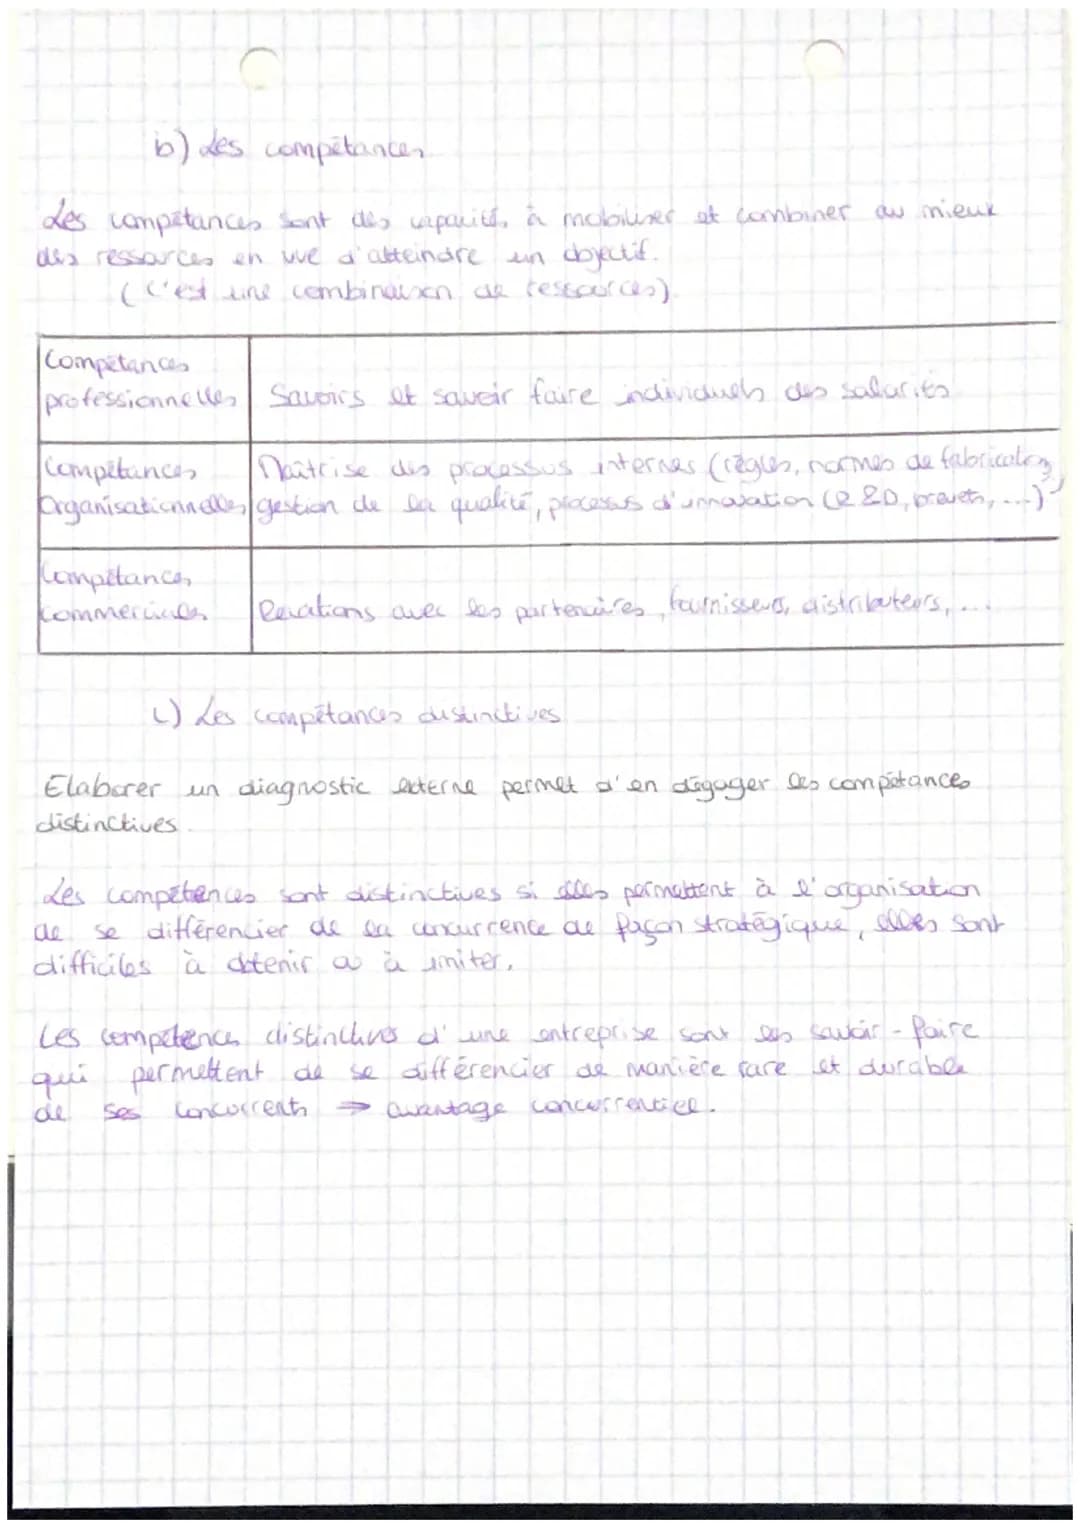 b) Les compétances
Les compétances sont des capacités à mobiliser et combiner au mieux
des ressources en vue d'atteindre un objectif.
(C'est une combinaison de ressources).
Compétances
professionnelles
Savoirs et savoir faire individuels des salariés
Compétances
Organisationnelles
Maîtrise des processus internes (règles, normes de fabrication,
gestion de la qualité, processus d'innovation (R&D, brevets, ...)
Compétances
commerciales
Relations avec les partenaires, fournisseurs, distributeurs, ...
c) Les compétances distinctives
Elaborer un diagnostic externe permet d'en dégager les compétances
distinctives.
Les compétences sont distinctives si elles permettent à l'organisation
de se différencier de la concurrence de façon stratégique, elles sont
difficiles à obtenir ou à imiter.
Les compétences distinctives d'une entreprise sont les savoir-faire
qui permettent de se différencier de manière rare et durable
de ses concurrents ⇒ avantage concurrentiel.